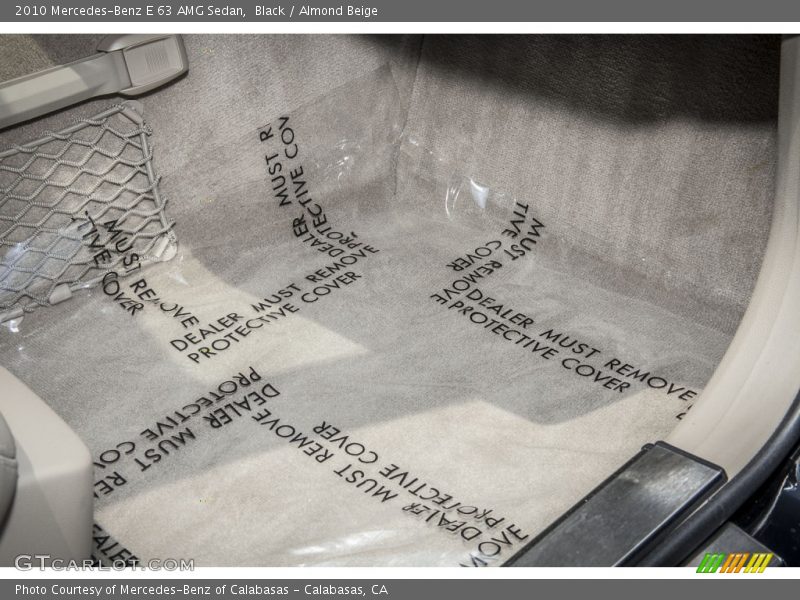 2010 Mercedes-Benz E 63 AMG Sedan, Black / Almond Beige
MUST R
TIVE COV
DEALER
MUST REMOVE
TIVE COVER
DEALER MUST REMOVE
PROTECTIVE COVER
MUST
TIVE COVER
DEALER MUST REMOVE
PROTECTIVE COVER
DEALER MUST RE
PROTECTIVE CO
DEALER MUST REMOVE
PROTECTIVE COVER
DEALER
GTCARLOT.COM
Photo Courtesy of Mercedes-Benz of Calabasas - Calabasas, CA